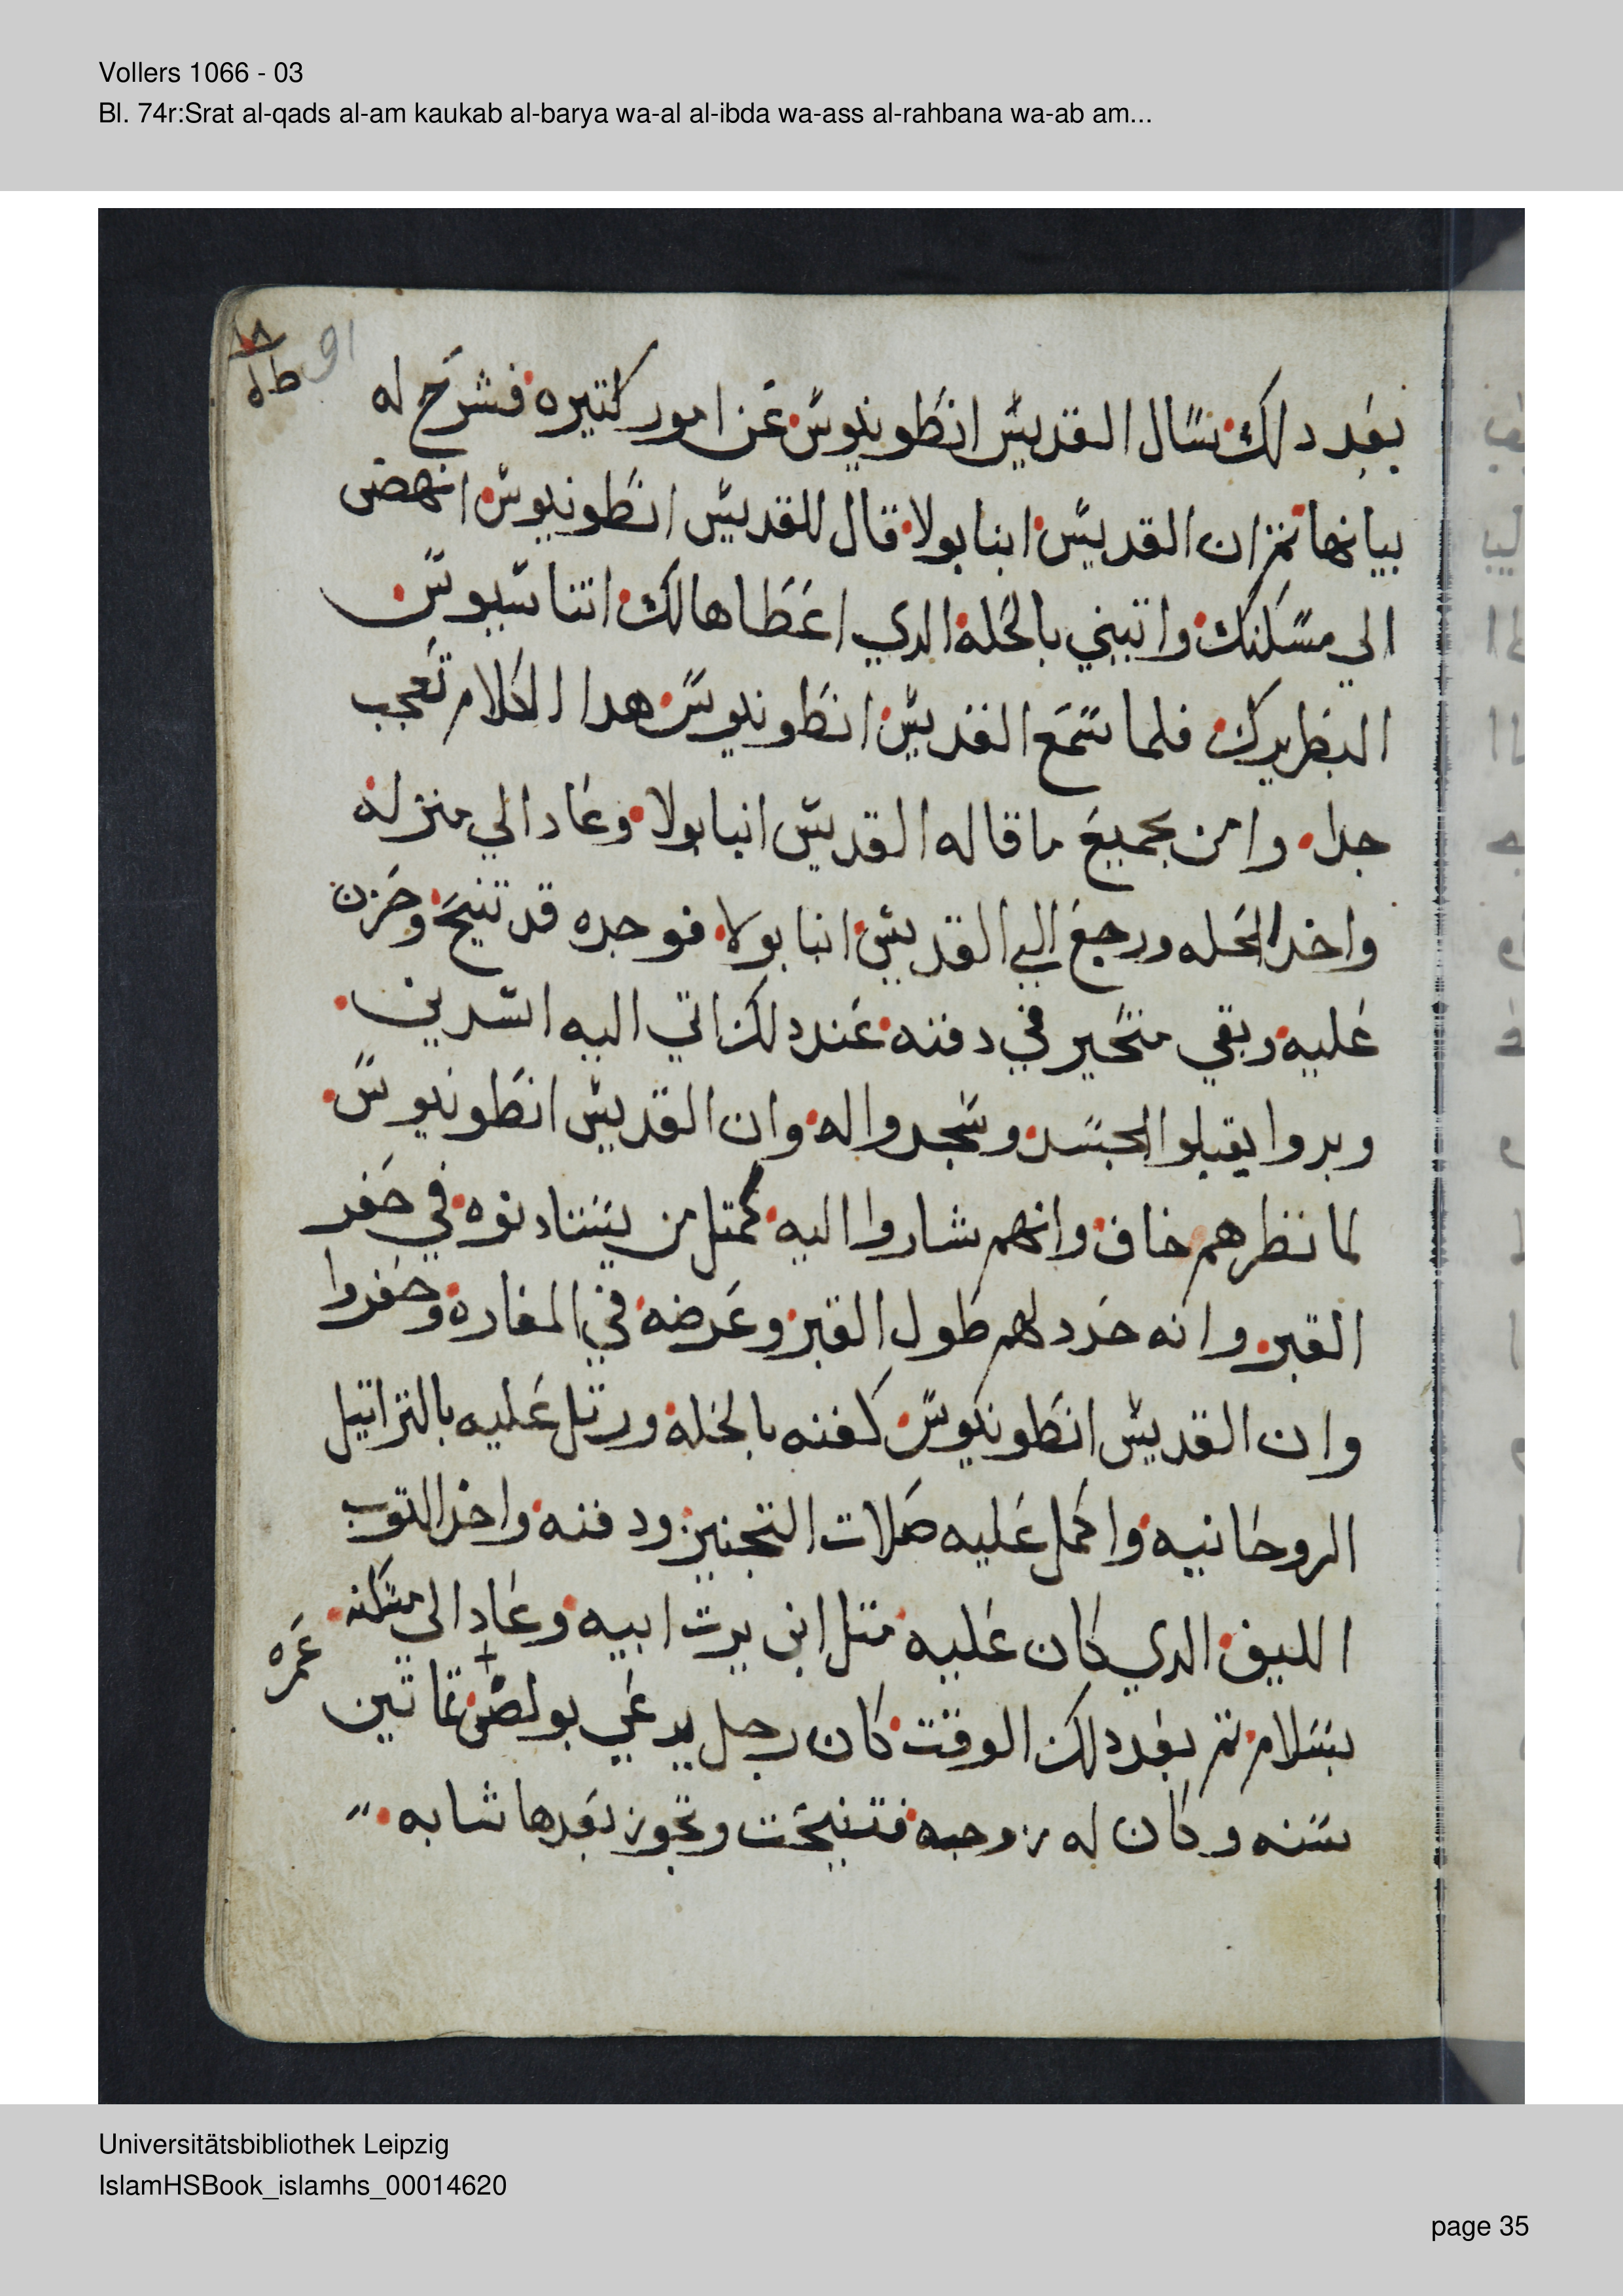 Vollers 1066 - 03
Bl. 74r:Srat al-qads al-am kaukab al-barya wa-al al-ibda wa-ass al-rahbana wa-ab am...
91
بعد دلك سال القديس انطونيوس عن امور كتيره فشرح له
بيانها تم ان القديس انبا بولا قال للقديس انطونيوس انهض
الي مسكنك واتيني بالحله الدي اعطاها لك اتناسيوس
البطريرك فلما سمع القديس انطونيوس هدا الكلام تعجب
جدا وامن بجميع ما قاله القديس انبا بولا وعاد الي منزله
واخد الحله ورجع الي القديس انبا بولا فوجده قد تنيح وحزن
عليه وبقي متحير في دفنه عند دلك اتي اليه اسدين
وبدوا يقبلوا الجسد وسجدوا له وان القديس انطونيوس
لما نظرهم خاف وانهم شاروا اليه كمتل من يستادنوه في حفر
القبر وانه حدد لهم طول القبر وعرضه في المغاره وحفروا
وان القديس انطونيوس كفنه بالحله ورتل عليه بالتراتيل
الروحانيه واكمل عليه صلات التجنيز ودفنه واخد التوب
الليف الدي كان عليه متل ابن يرت ابيه وعاد الي مسكنه
بسلام تم بعد دلك الوقت كان رجل يدعي بولص تمانين عمره
سنه وكان له زوجه فتنيحت وتجوز بعدها شابه
Universitätsbibliothek Leipzig
IslamHSBook_islamhs_00014620
page 35